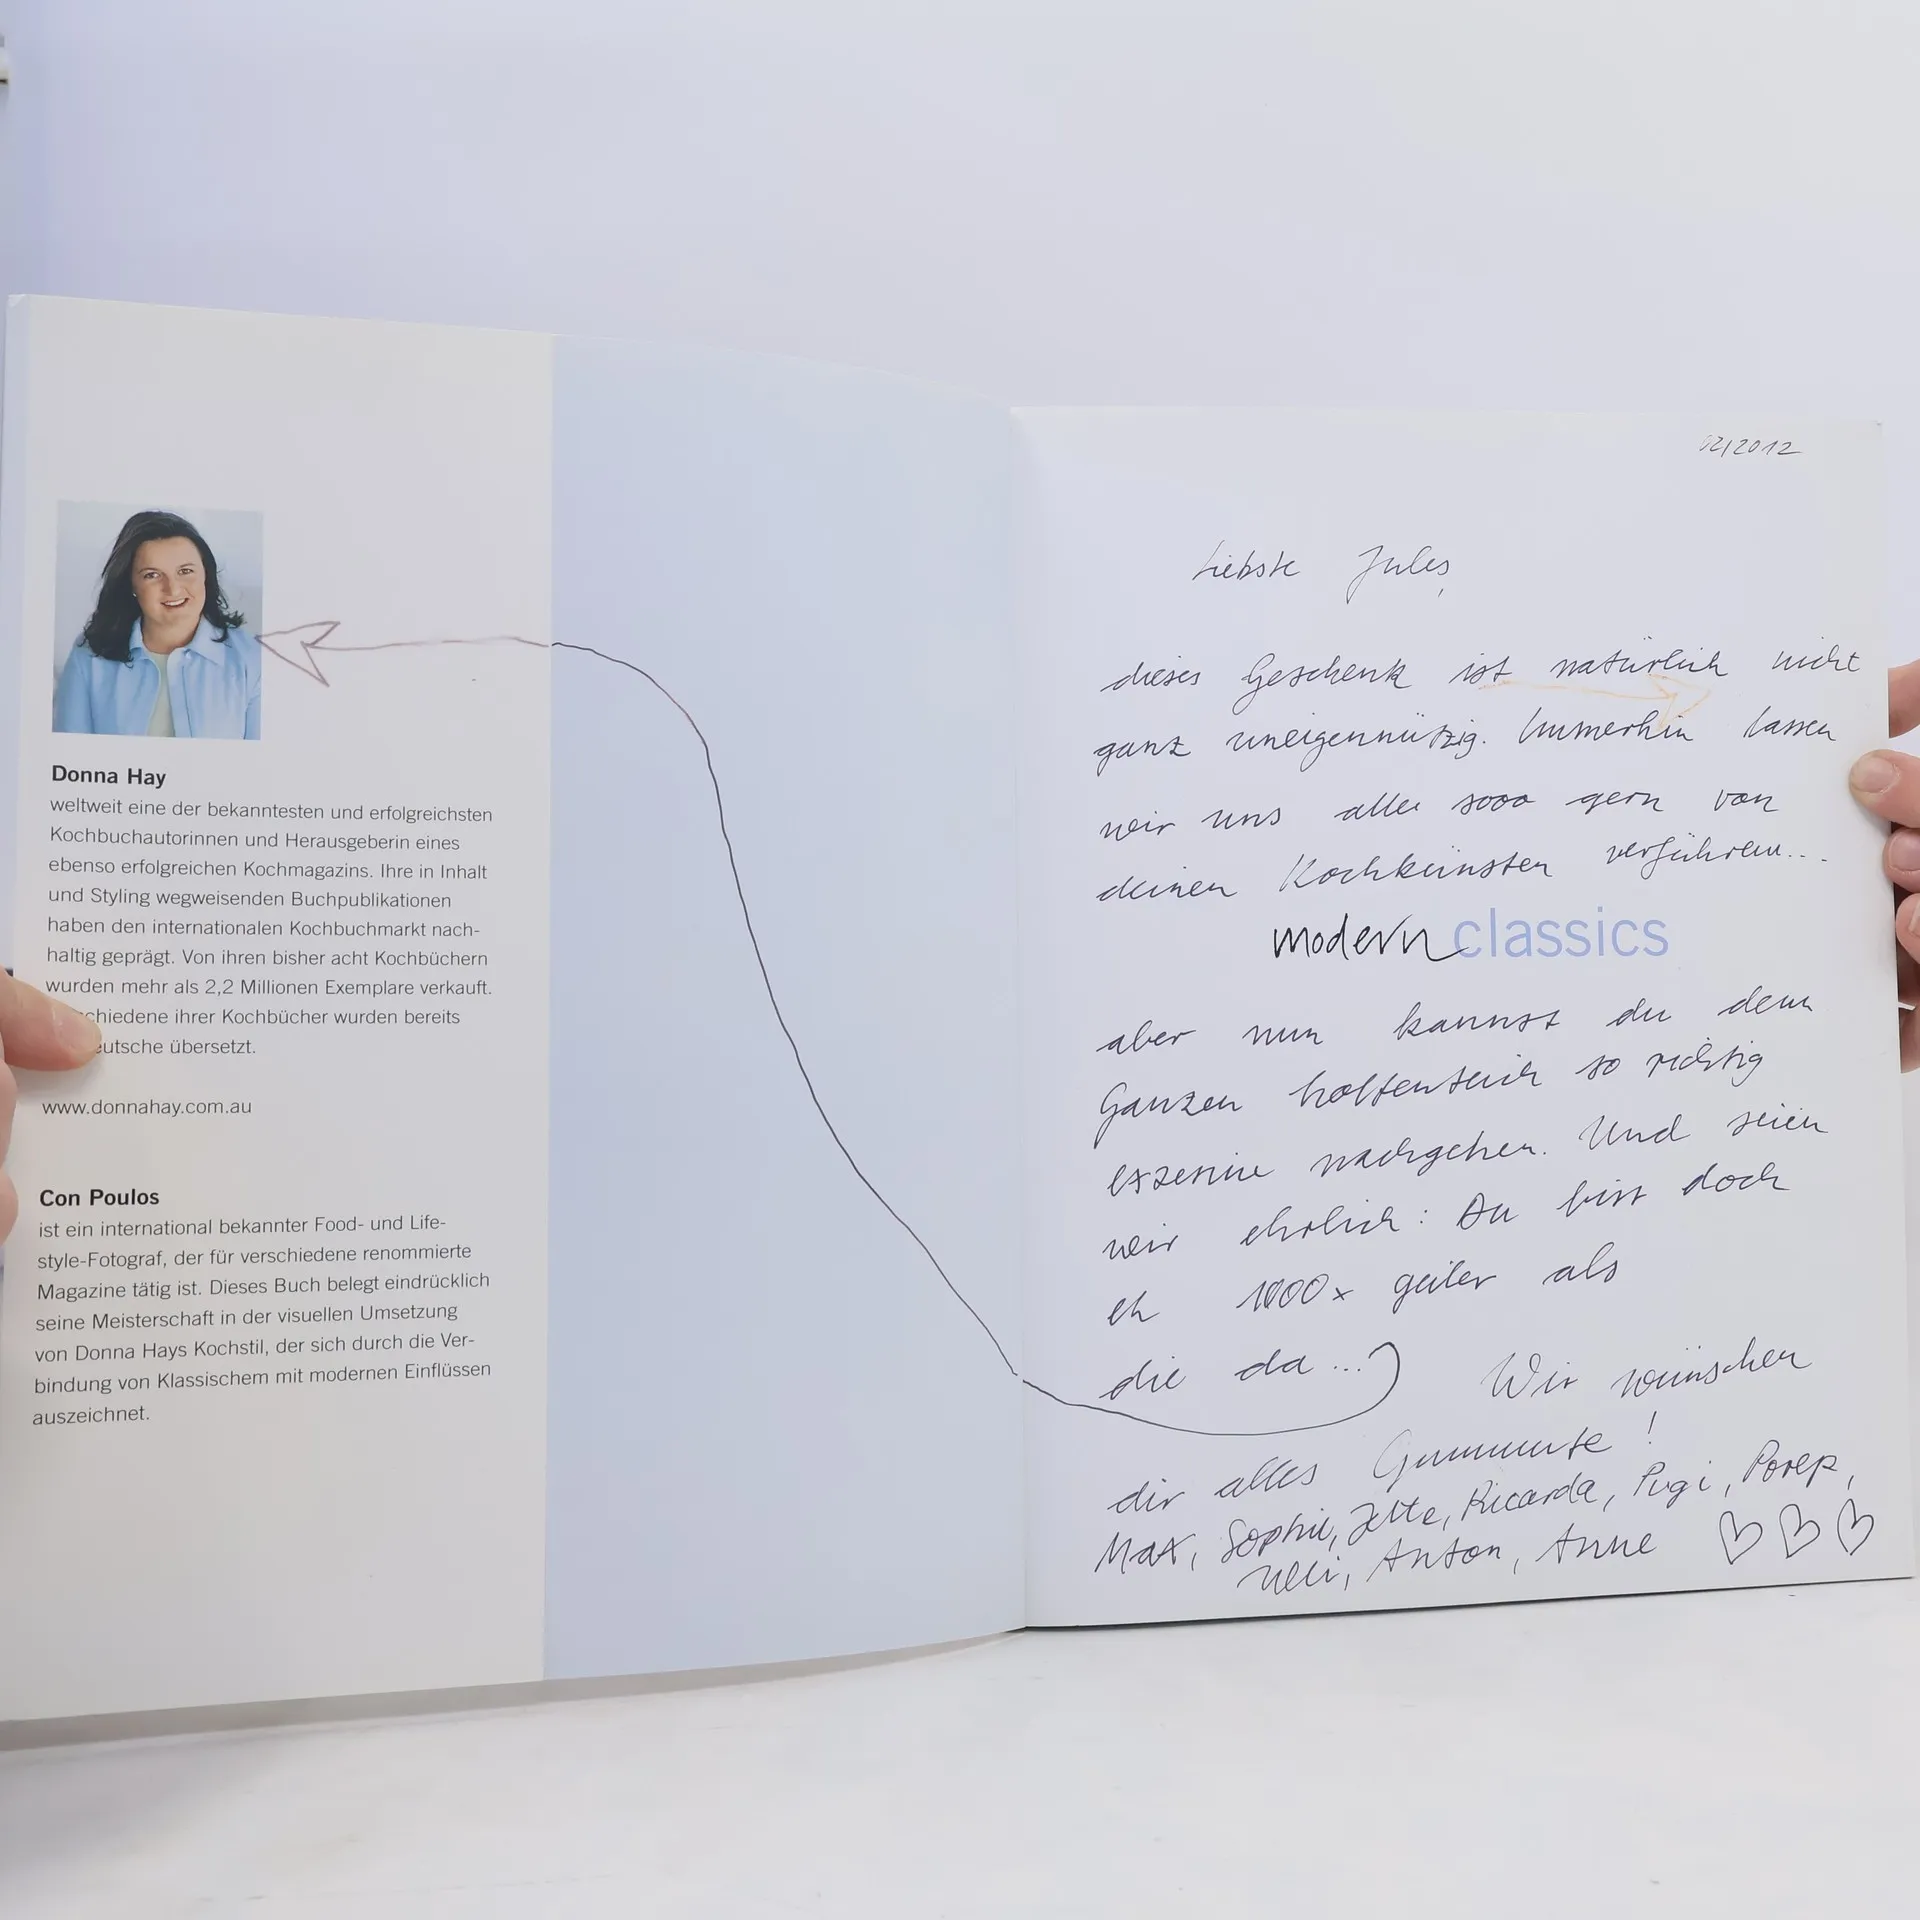 Donna Hay
weltweit eine der bekanntesten und erfolgreichsten
Kochbuchautorinnen und Herausgeberin eines
ebenso erfolgreichen Kochmagazins. Ihre in Inhalt
und Styling wegweisenden Buchpublikationen
haben den internationalen Kochbuchmarkt nach-
haltig geprägt. Von ihren bisher acht Kochbüchern
wurden mehr als 2,2 Millionen Exemplare verkauft.
chiedene ihrer Kochbücher wurden bereits
eutsche übersetzt.
www.donnahay.com.au
Con Poulos
ist ein international bekannter Food- und Life-
style-Fotograf, der für verschiedene renommierte
Magazine tätig ist. Dieses Buch belegt eindrücklich
seine Meisterschaft in der visuellen Umsetzung
von Donna Hays Kochstil, der sich durch die Ver-
bindung von Klassischem mit modernen Einflüssen
auszeichnet.
02/2012
Liebste Jules,
dieses Geschenk ist natürlich nicht
ganz uneigennützig. Immerhin lassen
wir uns alle sooo gern von
deinen Kochkünsten verführen...
modern classics
aber nun kannst du dem
Ganzen hoffentlich so richtig
exzessiv nachgehen. Und seien
wir ehrlich: Du bist doch
eh 1000x geiler als
die da ... Wir wünschen
dir alles Guuuuute!
Max, Sophie, Jette, Ricarda, Pugi, Porep,
Neli, Anton, Anne